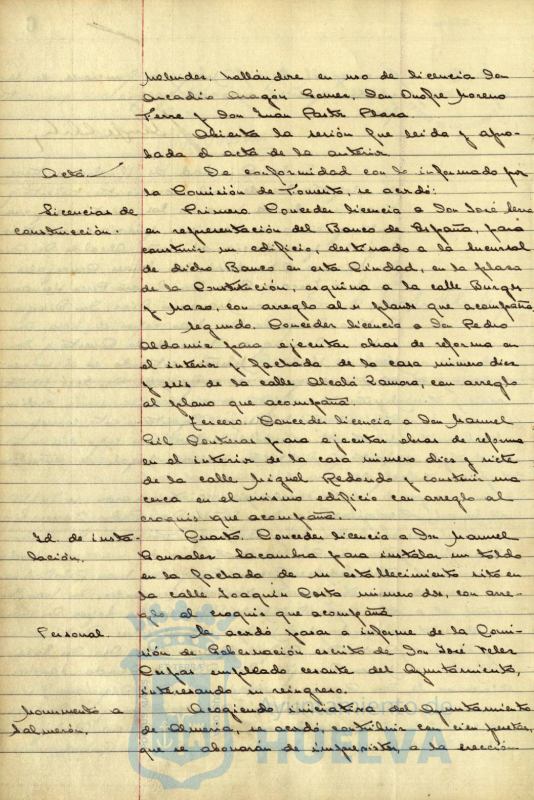 Melendez, hallándose en uso de licencia Don
Arcadio Aragón Gomez, Don Onofre Moreno
Ferre y Don Juan Pastor Plaza.
Abierta la sesión fue leida y apro-
bada el acta de la anterior.
Acta.
De conformidad con lo informado por
la Comisión de Fomento, se acordó:
Licencias de
construcción.
Primero. Conceder licencia a Don José
en representación del Banco de España, para
construir un edificio, destinado a la sucursal
de dicho Banco en esta Ciudad, en la plaza
de la Constitución, esquina a la calle Burgos
y Mazo, con arreglo al plano que acompaña.
Segundo. Conceder licencia a Don Pedro
Aldamiz para ejecutar obras de reforma en
el interior y fachada de la casa número diez
y seis de la calle Alcalá Zamora, con arreglo
al plano que acompaña.
Tercero. Conceder licencia a Don Manuel
Gil Contreras para ejecutar obras de reforma
en el interior de la casa número diez y siete
de la calle Miguel Redondo y construir una
cerca en el mismo edificio con arreglo al
croquis que acompaña.
Id. de insta-
lación.
Cuarto. Conceder licencia a Don Manuel
Gonzalez Lacambra para instalar un toldo
en la fachada de su establecimiento sito en
la calle Joaquín Costa número dos, con arre-
glo al croquis que acompaña
Personal.
Se acordó pasar a informe de la Comi-
sión de Gobernación escrito de Don José Velez
empleado cesante del Ayuntamiento,
interesando su reingreso.
Monumento a
Salmerón.
Acogiendo iniciativa del Ayuntamiento
de Almeria, se acordó, contribuir con cien pesetas,
que se abonarán de imprevistos, a la erección
Ayuntamiento de
HUELVA